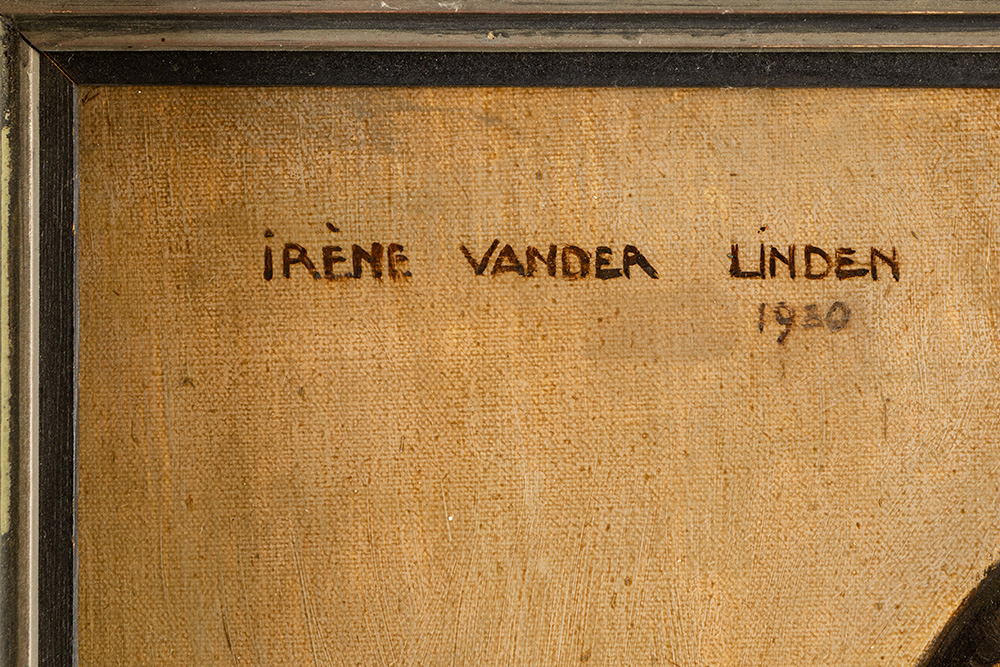 iRÈNE VANDER LiNDEN
1930